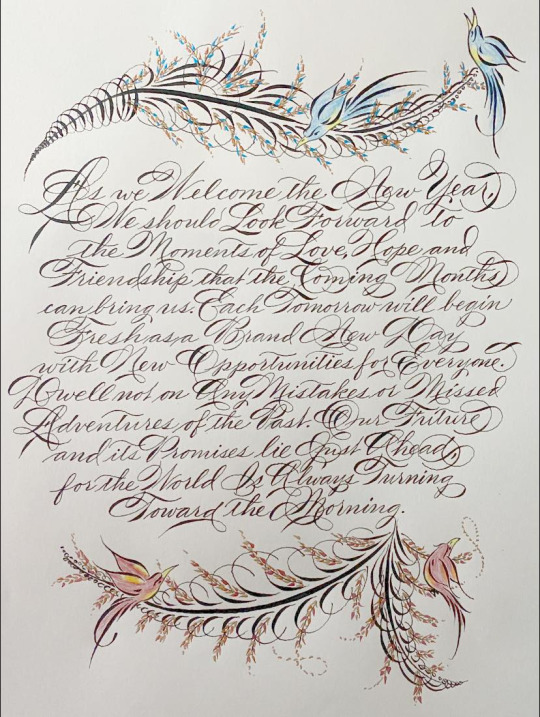 As we Welcome the New Year,
We should Look Forward to
the Moments of Love, Hope and
Friendship that the Coming Months
can bring us. Each Tomorrow will begin
Fresh as a Brand New Day
with New Opportunities for Everyone.
Dwell not on Any Mistakes or Missed
Adventures of the Past. Our Future
and its Promises lie Just Ahead,
for the World Is Always Turning
Toward the Morning.